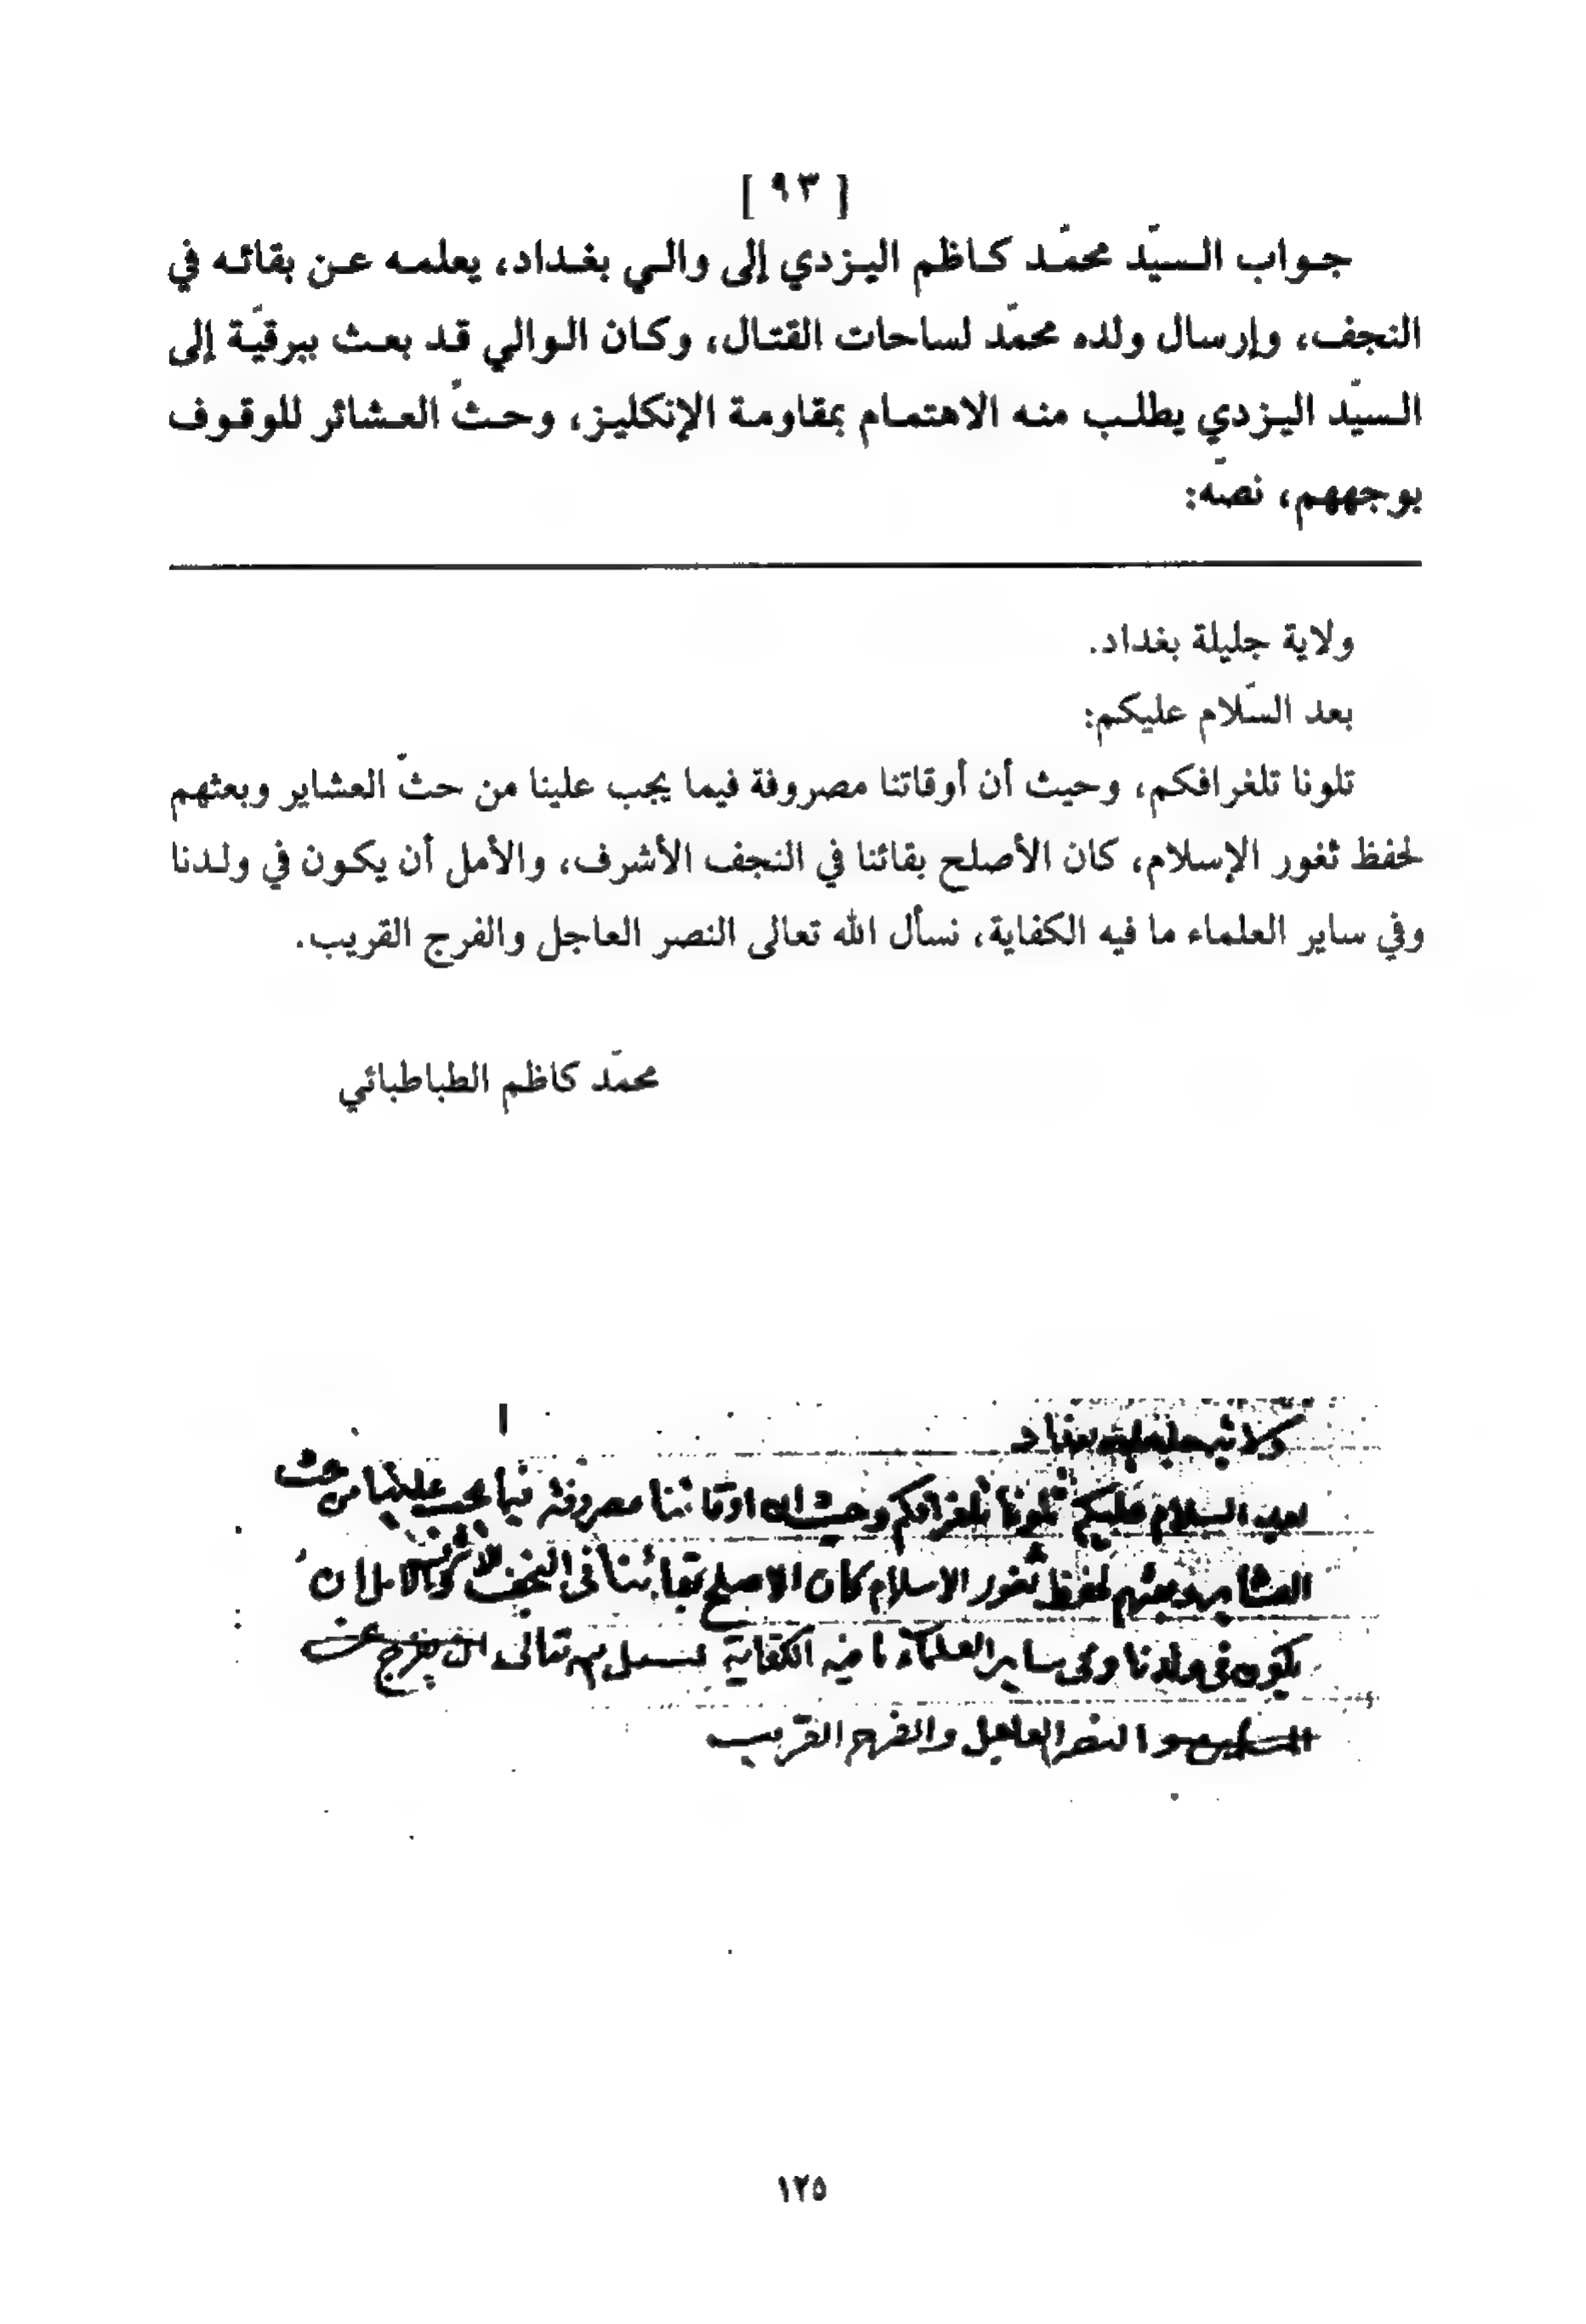 [ ٩٣ ]
جواب السيّد محمّد كاظم اليزدي إلى والي بغداد، يعلمه عن بقائه في
النجف، وإرسال ولده محمّد لساحات القتال، وكان الوالي قد بعث ببرقيّة إلى
السيّد اليزدي يطلب منه الاهتمام بمقاومة الإنكليز، وحثّ العشائر للوقوف
بوجههم، نصّه:
ولاية جليلة بغداد.
بعد السّلام عليكم:
تلونا تلغرافكم، وحيث أن أوقاتنا مصروفة فيما يجب علينا من حثّ العشاير وبعثهم
لحفظ ثغور الإسلام، كان الأصلح بقائنا في النجف الأشرف، والأمل أن يكون في ولدنا
وفي ساير العلماء ما فيه الكفاية، نسأل الله تعالى النصر العاجل والفرج القريب.
محمّد كاظم الطباطبائي
ولاية جليلة بغداد
بعد السلام عليكم تلونا تلغرافكم وحيث ان اوقاتنا مصروفة فيما يجب علينا من حث
العشاير وبعثهم لحفظ ثغور الاسلام كان الاصلح بقائنا في النجف الاشرف والامل ان
يكون في ولدنا وفي ساير العلماء ما فيه الكفاية نسئل الله تعالى ان يفرج عن
و النصر العاجل والفرج القريب
١٢٥